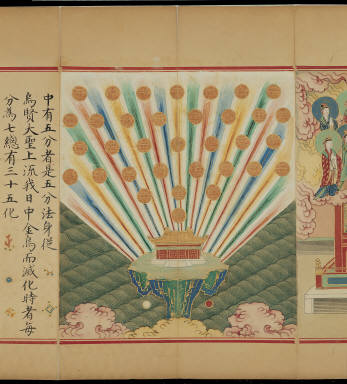 中有五分者是五分法身從
烏賢大聖上流我日中金烏而滅化時者每
分為七總有三十五化